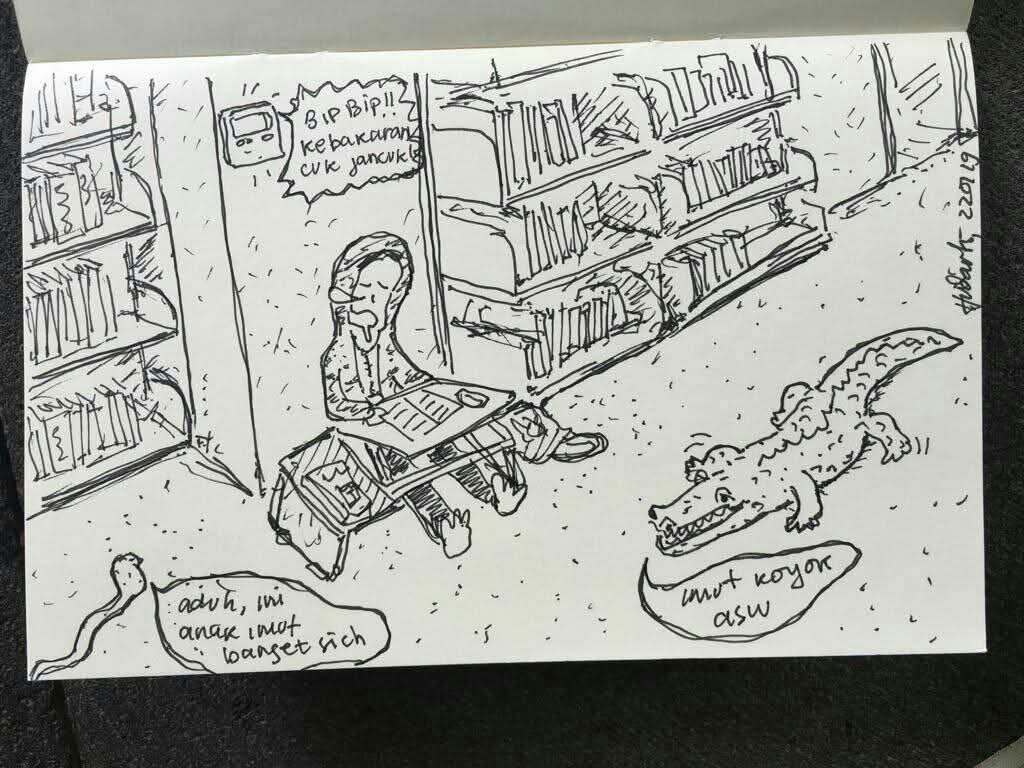 BIP BIP!!
kebakaran
cuk jancuk
aduh, ini
anak imut
banget sich
imut koyok
asw
220119